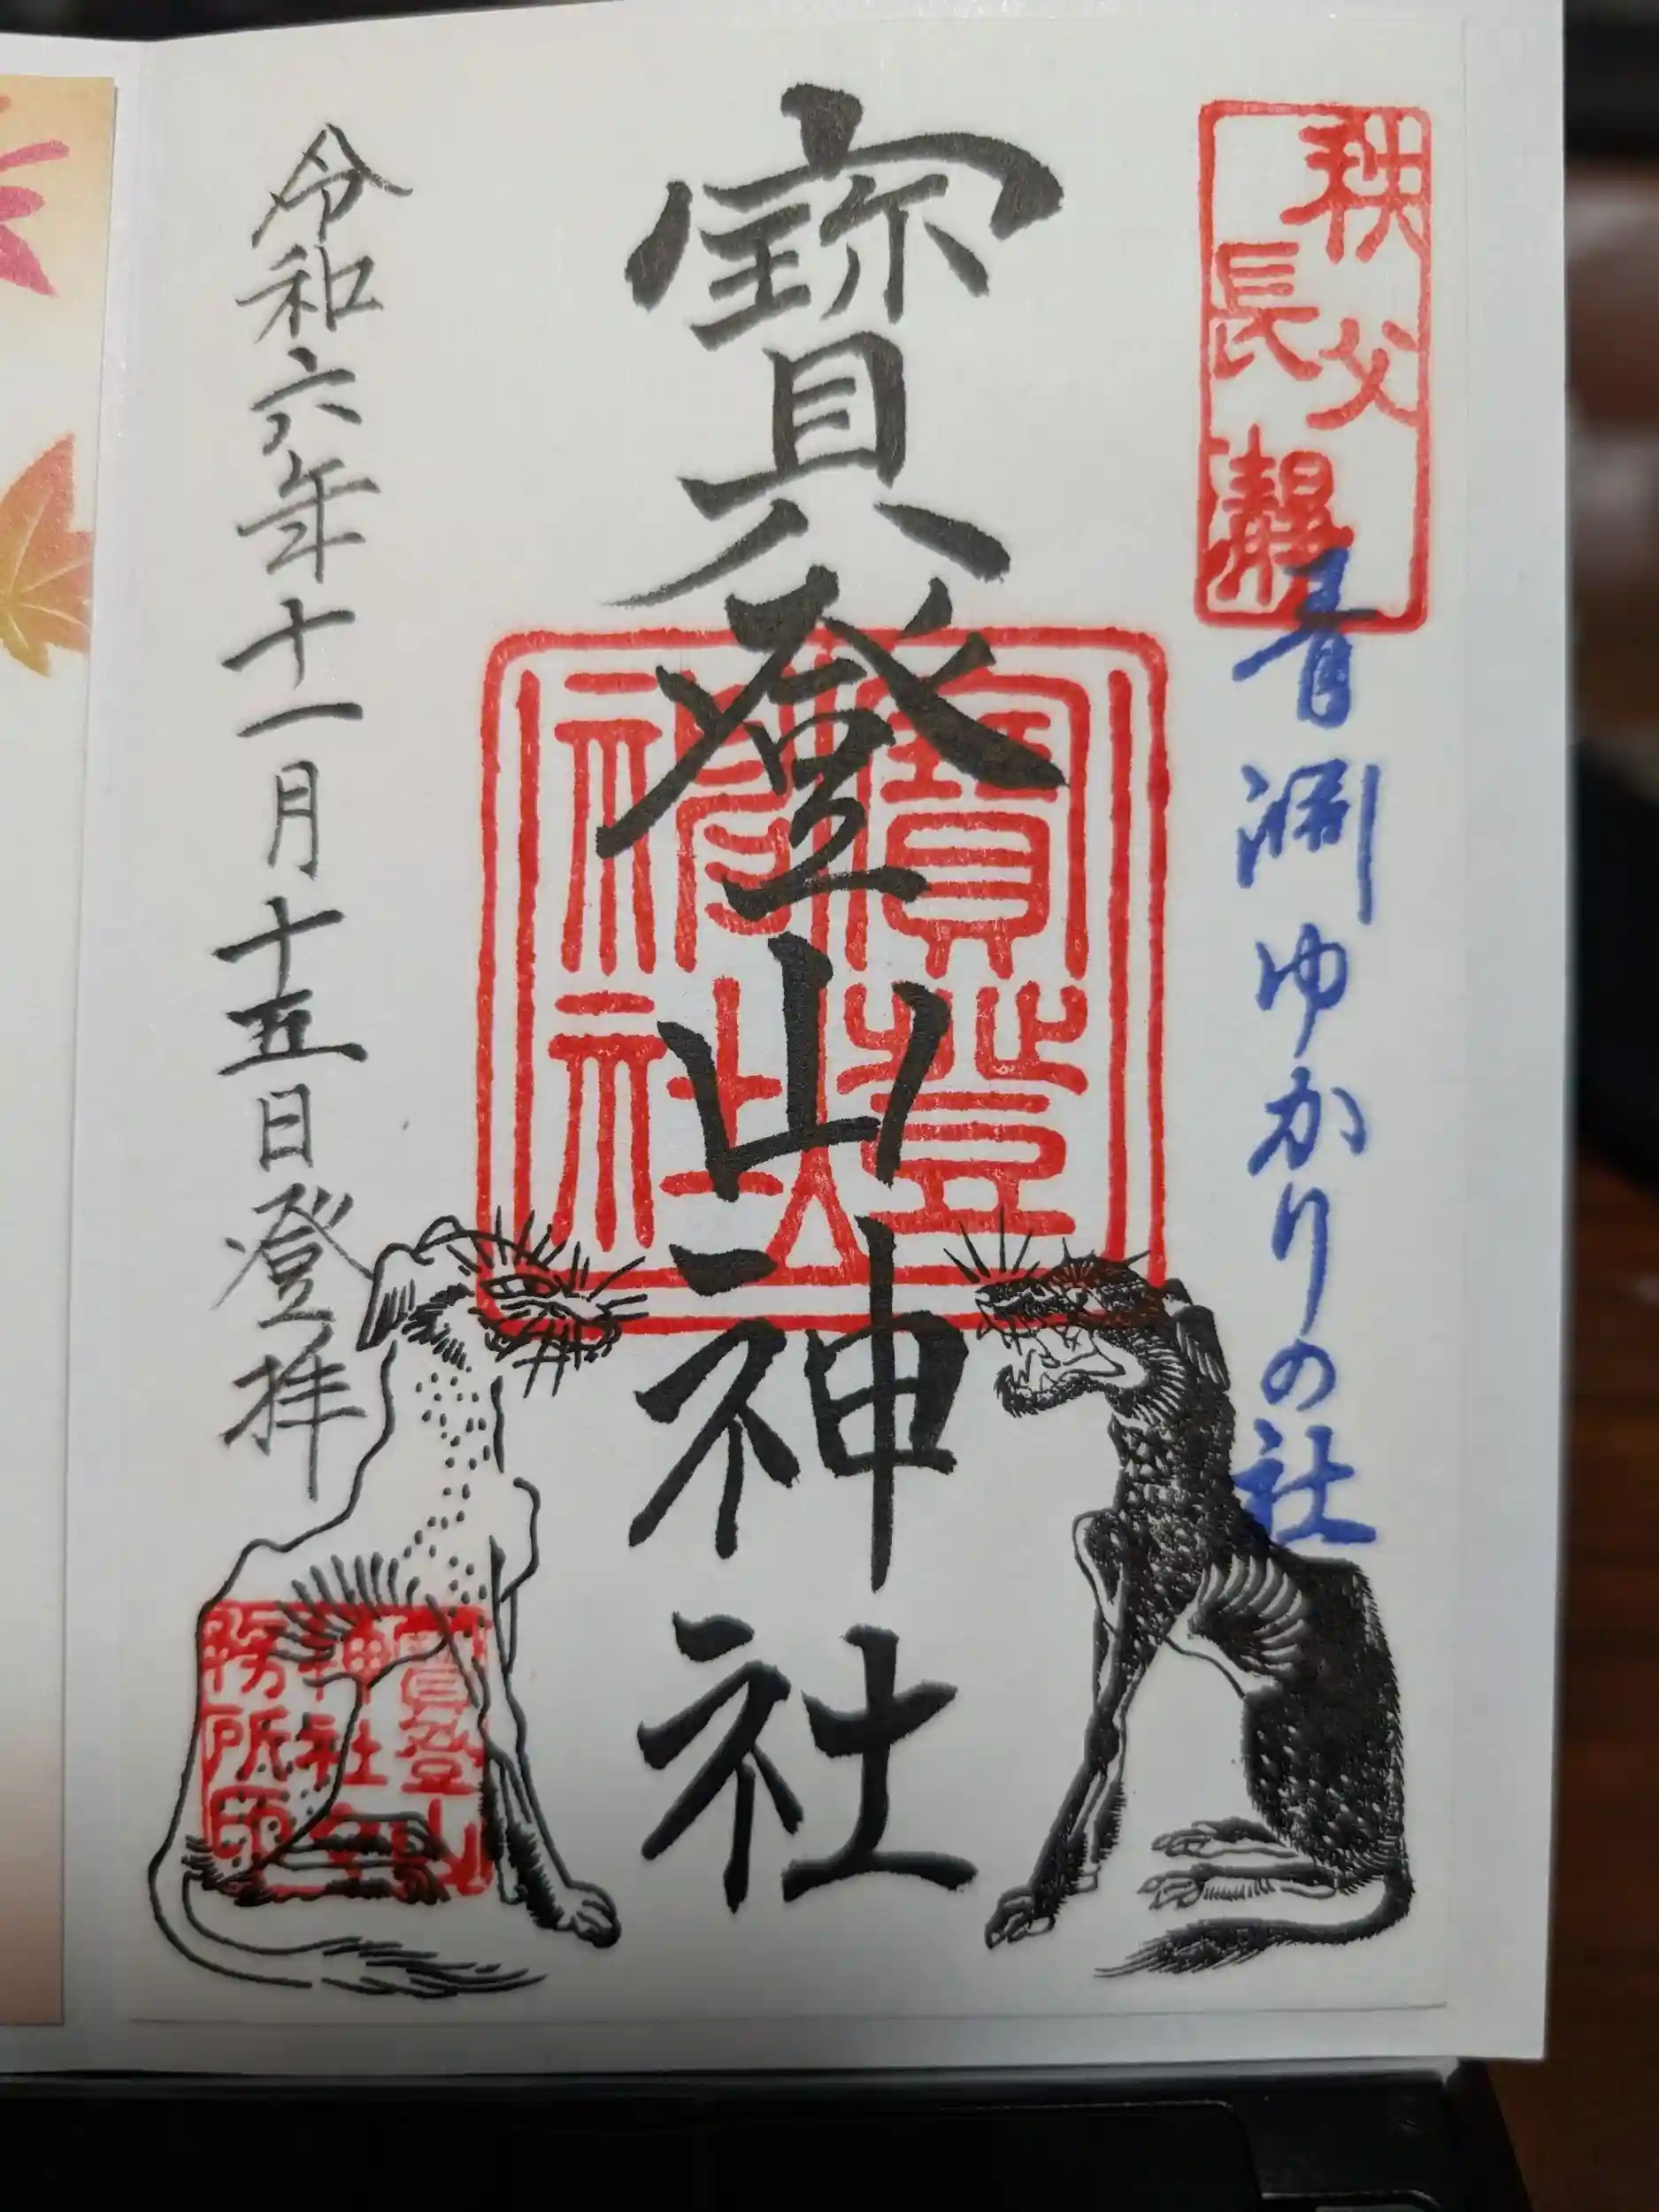 秩父
長瀞
青淵ゆかりの社
寳登山神社
寳登山
神社
令和六年十一月十五日登拝
寳登山
神社社
務所印